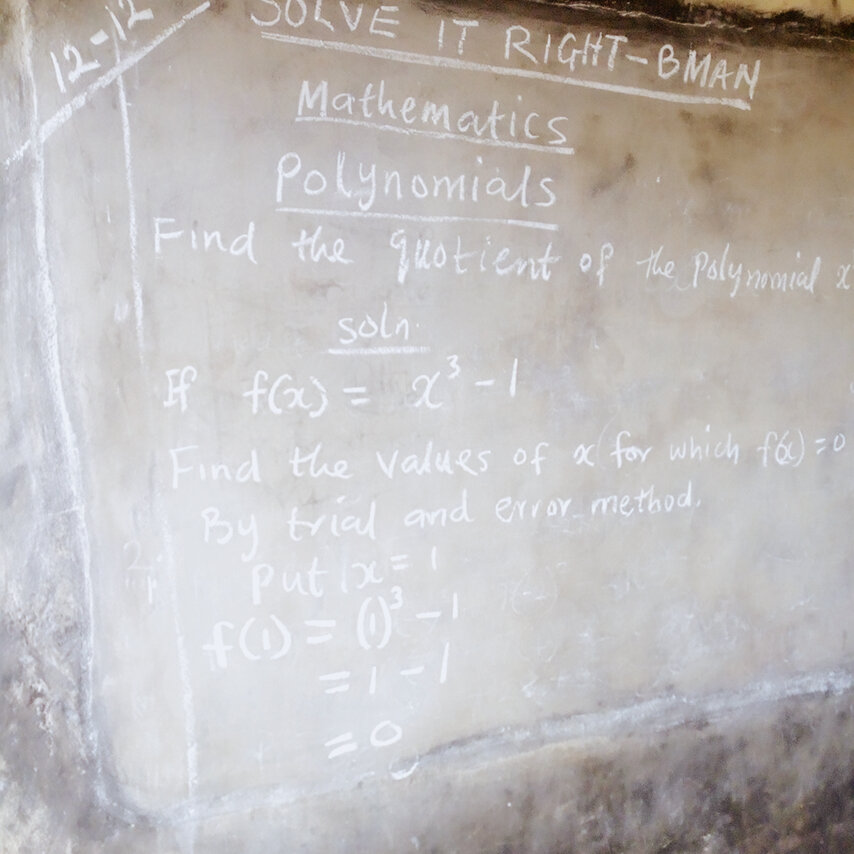 12-12
SOLVE IT RIGHT-BMAN
Mathematics
Polynomials
Find the quotient of the polynomial x
soln.
If f(x) = x³ - 1
Find the values of x for which f(x) = 0
By trial and error method.
put x = 1
f(1) = (1)³ - 1
= 1 - 1
= 0